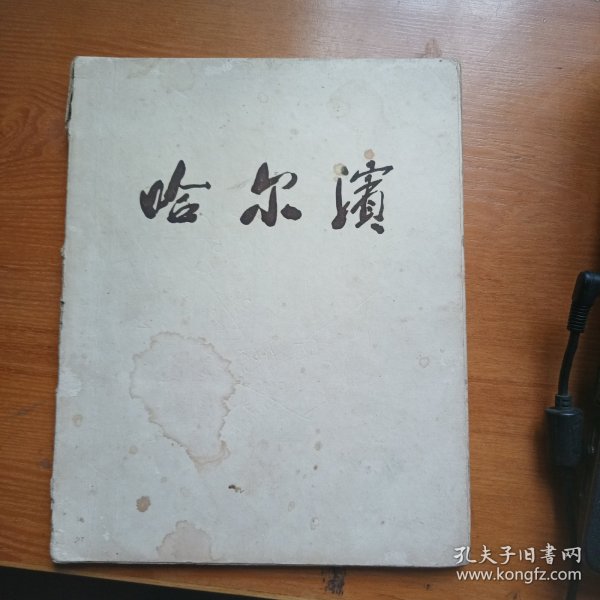 哈尔濱
孔夫子旧書网
www.kongfz.com